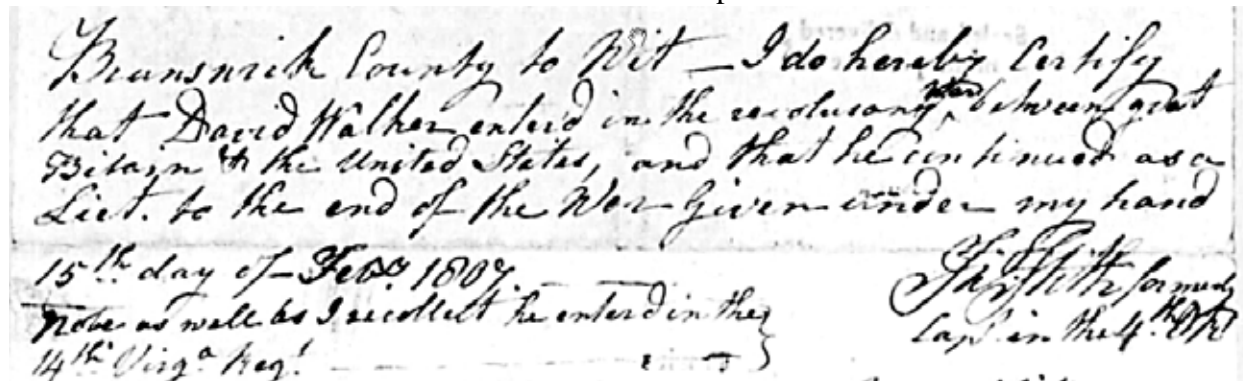 Brunswick County to Wit — I do hereby Certify
that David Walker enter'd in the revolusony war between great
Bitarn & the United States, and that he continued as a
Liet. to the end of the War Given under my hand
15th day of Feby. 1807.
formerly
Note as well as I recollect he enterd in the
Capt. in the 4th
14th Virga Regt.